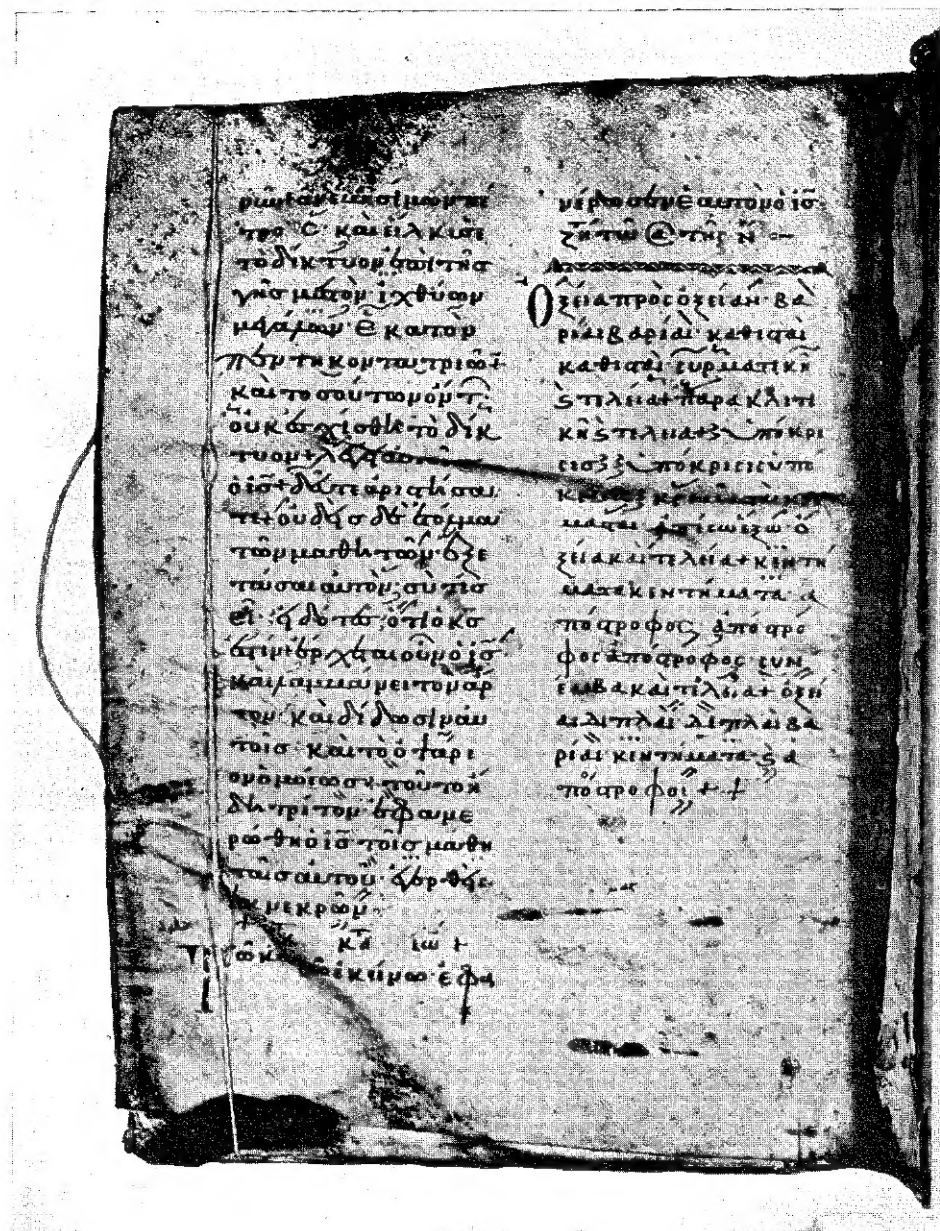 ρων ἀνέβη σίμων πέ
τρος καὶ εἵλκυσε
τὸ δίκτυον ἐπὶ τῆς
γῆς μεστὸν ἰχθύων
μεγάλων ἑ κατὸν
πεντηκοντατριῶν
καὶ τοσούτων ὄντ
οὐκ ἐσχίσθη τὸ δίκ
τυον + λέγει αὐτοῖς
ὁ ις + δεῦτε ἀριστήσα
τε + οὐδεὶς δὲ ἐτόλμα
τῶν μαθητῶν ἐξε
τάσαι αὐτόν σὺ τίς
εἶ εἰδότες ὅτι ὁ κς
ἐστιν ἔρχεται οὖν ὁ ις
καὶ λαμβάνει τὸν ἄρ
τον καὶ δίδωσιν αὐ
τοῖς καὶ τὸ ὀψάρι
ον ὁμοίως + τοῦτο ἤ
δη τρίτον ἐφανε
ρώθη ὁ ις τοῖς μαθη
ταῖς αὐτοῦ ἐγερθεὶς
ἐκ νεκρῶν
κα ιω +
Τῶ κ ἐκείνω ἐφα
νέρωσεν ἑαυτὸν ὁ ις
ζη τῶ τῆς Ν
Οξεῖα πρὸς ὀξεῖαν βα
ρίαι βαρίαι καθισταὶ
καθισταὶ συρματικὴ
ς τελεία + παρακλιτι
κὴ ς τελεία + ὑπόκρι
σις ὑπόκρισις ὑπό
κρισις κρεμασταὶ κρε
μασταὶ ἀπέσω ἔξω ὀ
ξεῖα καὶ τελεία + κεντή
ματα κεντήματα ἀ
πόστροφος ἀπόστρο
φος ἀπόστροφος συν
έμβα καὶ τελεία + ὀξεῖ
αι διπλαὶ διπλαὶ βα
ρίαι κεντήματα ς ἀ
πόστροφοι + +